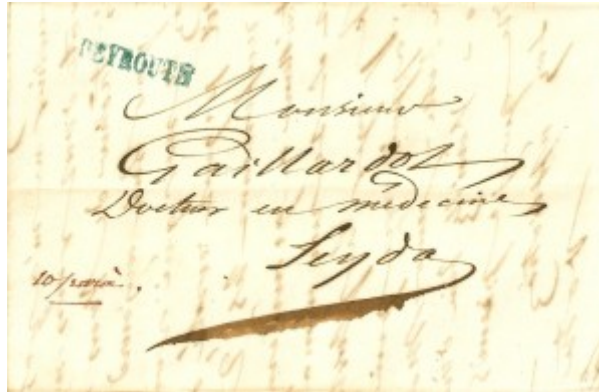 BEYROUTH
Monsieur
Gaillardot
Docteur en médecine
Seyda